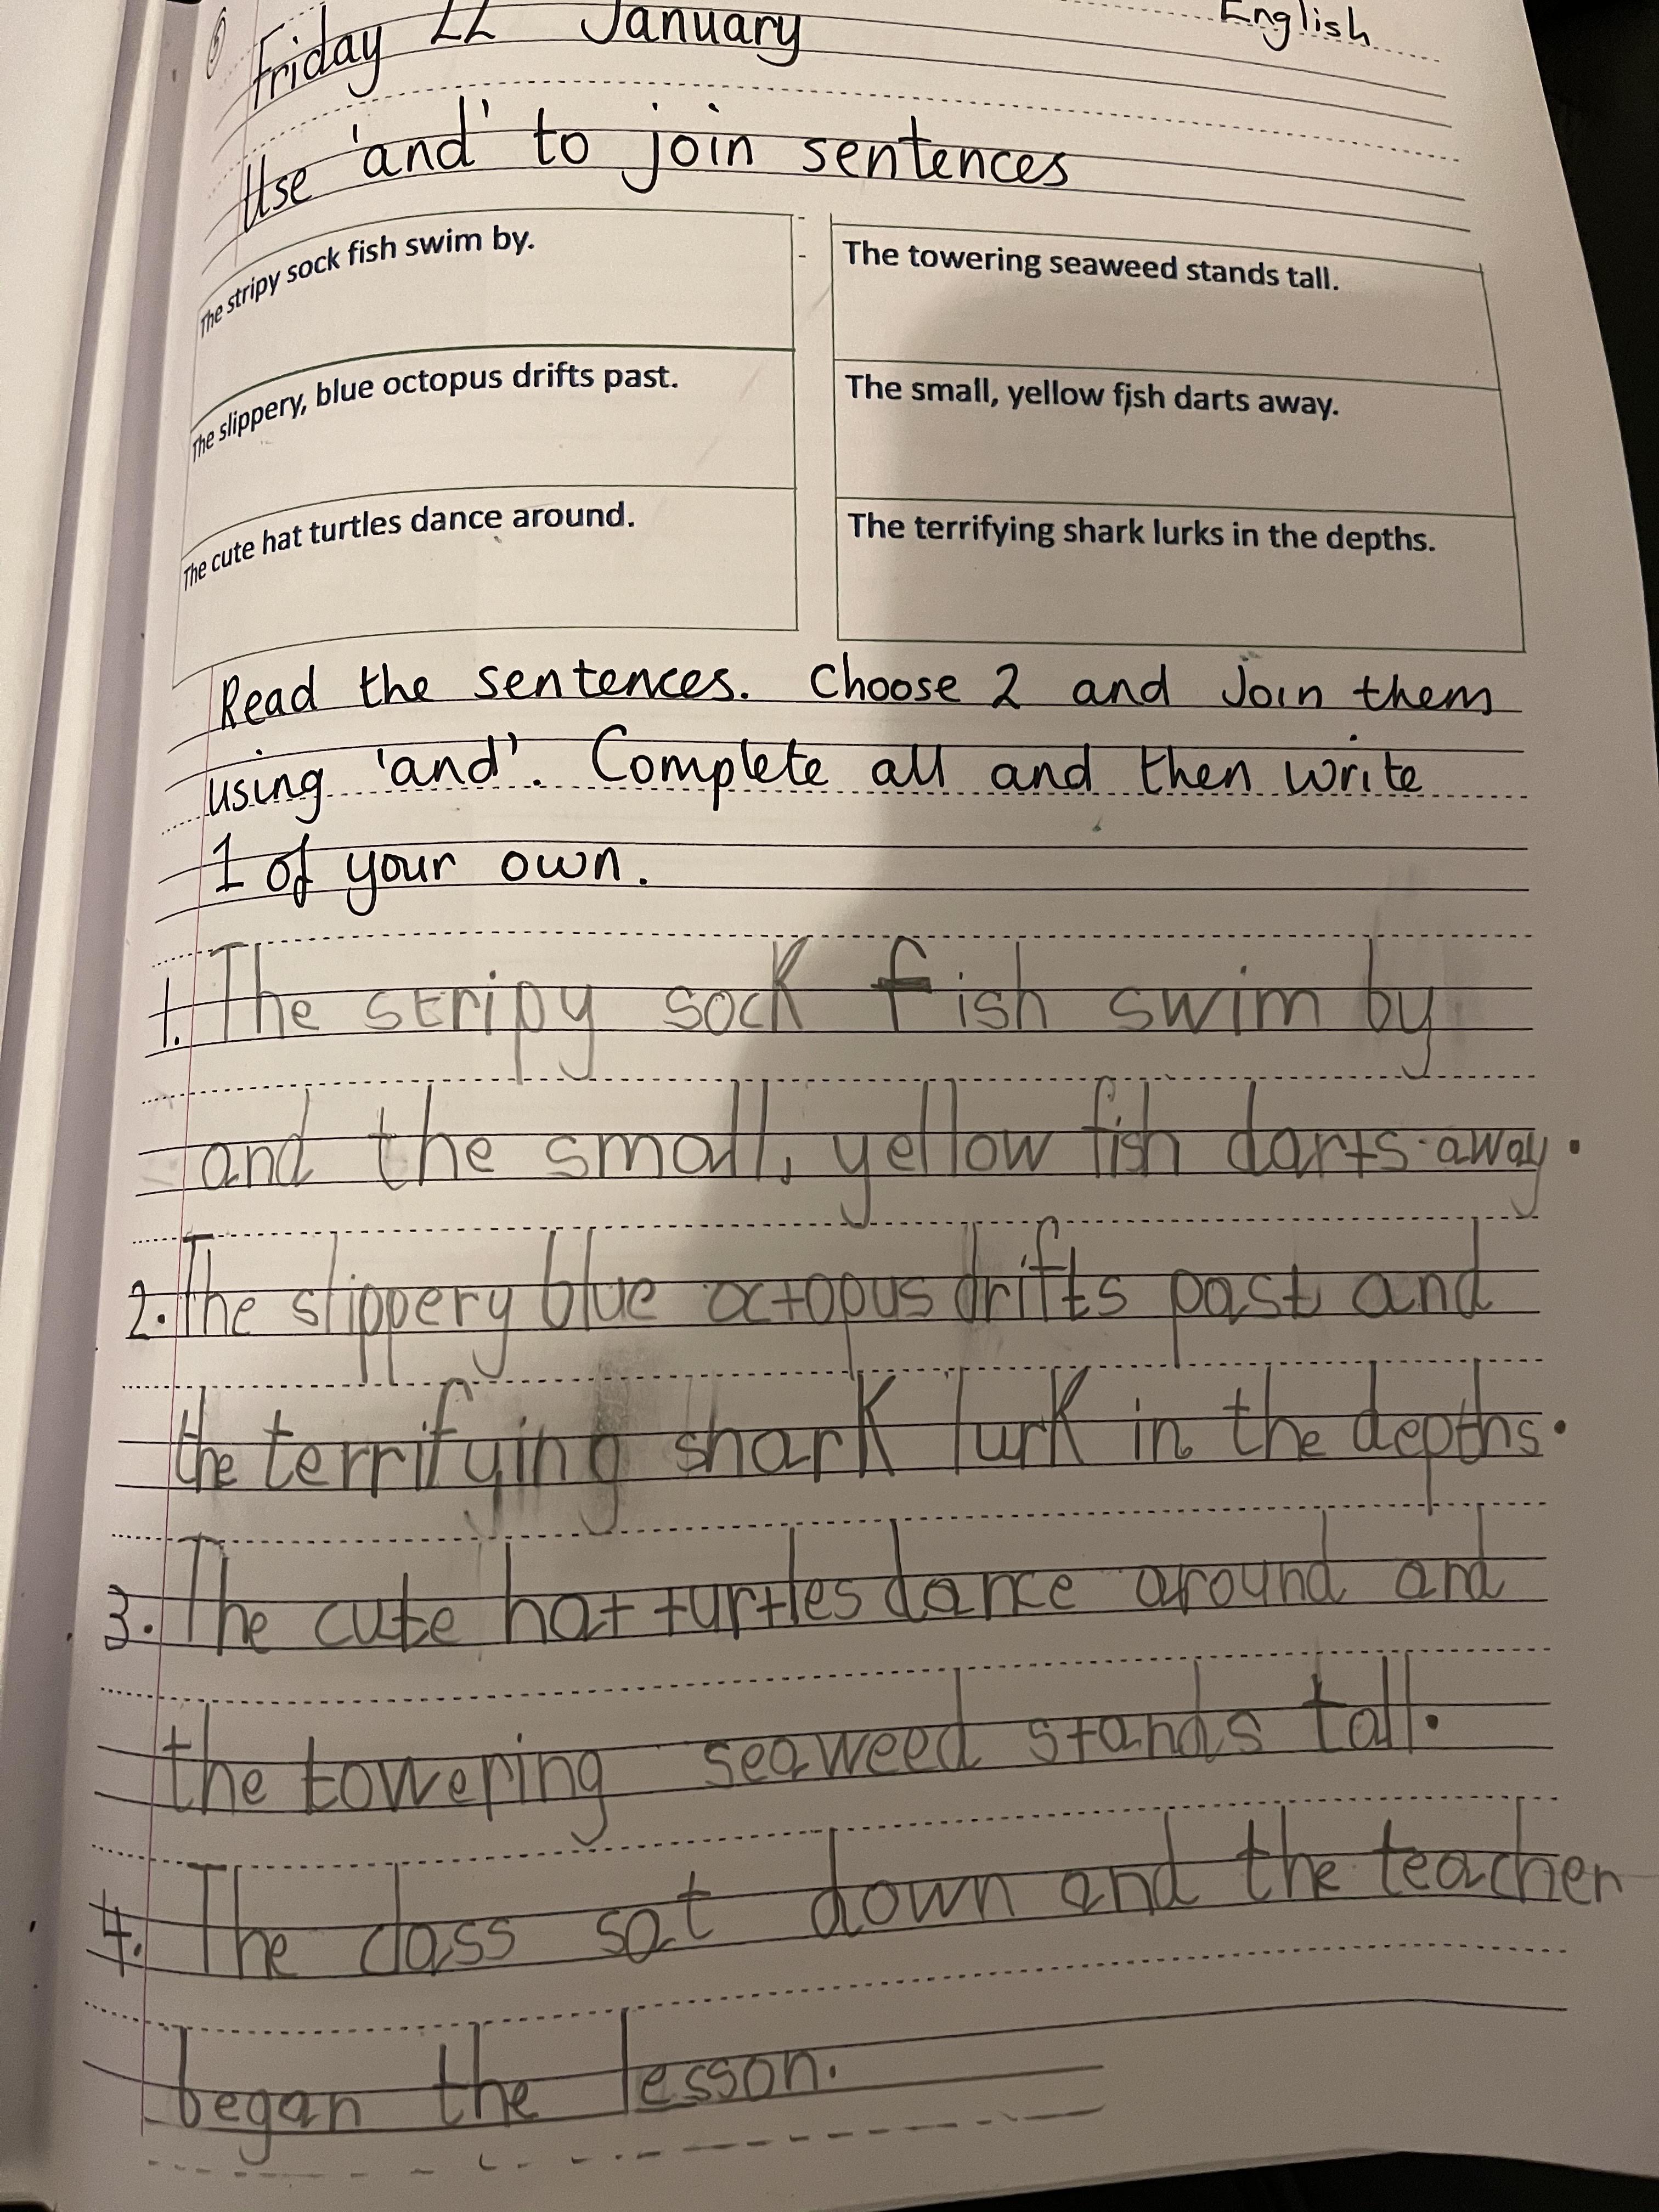 Friday 22 January
English
Use 'and' to join sentences
The stripy sock fish swim by.
The towering seaweed stands tall.
The slippery, blue octopus drifts past.
The small, yellow fish darts away.
The cute hat turtles dance around.
The terrifying shark lurks in the depths.
Read the sentences. Choose 2 and join them
using 'and'. Complete all and then write
1 of your own.
1. The stripy sock fish swim by
and the small, yellow fish darts away.
2. The slippery blue octopus drifts past and
the terrifying shark lurk in the depths.
3. The cute hat turtles dance around and
the towering seaweed stands tall.
4. The class sat down and the teacher
began the lesson.